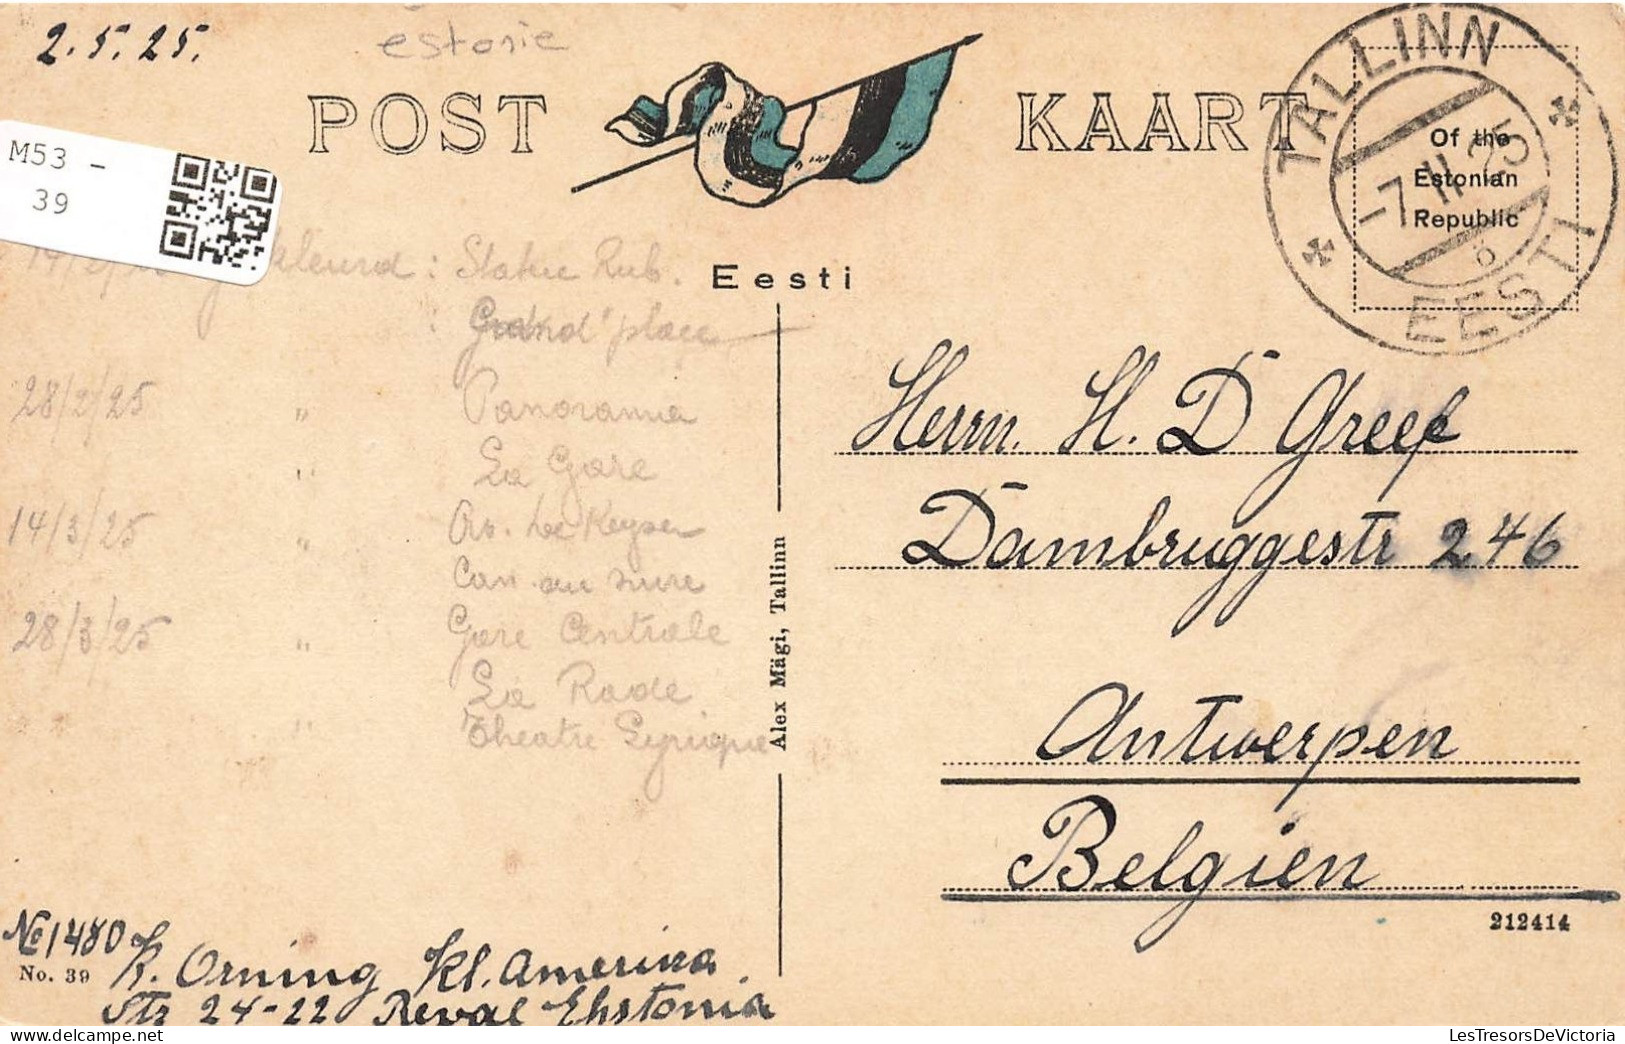 2.5.25.
éstonie
POST KAART
TALLINN
-7.II.25
EESTI
Of the
Estonian
Republic
M53 -
39
kleurd : Statue Rub.
: Grand' place
Eesti
28/2/25 " Panorama
" La Gare
14/3/25 " Av. De Keyser
Can. au sucre
28/3/25 " Gare Centrale
La Rade
" Theatre Lyrique
Alex Mägi, Tallinn
Herrn. H. D Greef
Dambruggestr 246
Antwerpen
Belgien
212414
№1480
No. 39
K. Orning Kl. Amerika
Str 24-22 Reval Ehstonia
LesTresorsDeVictoria